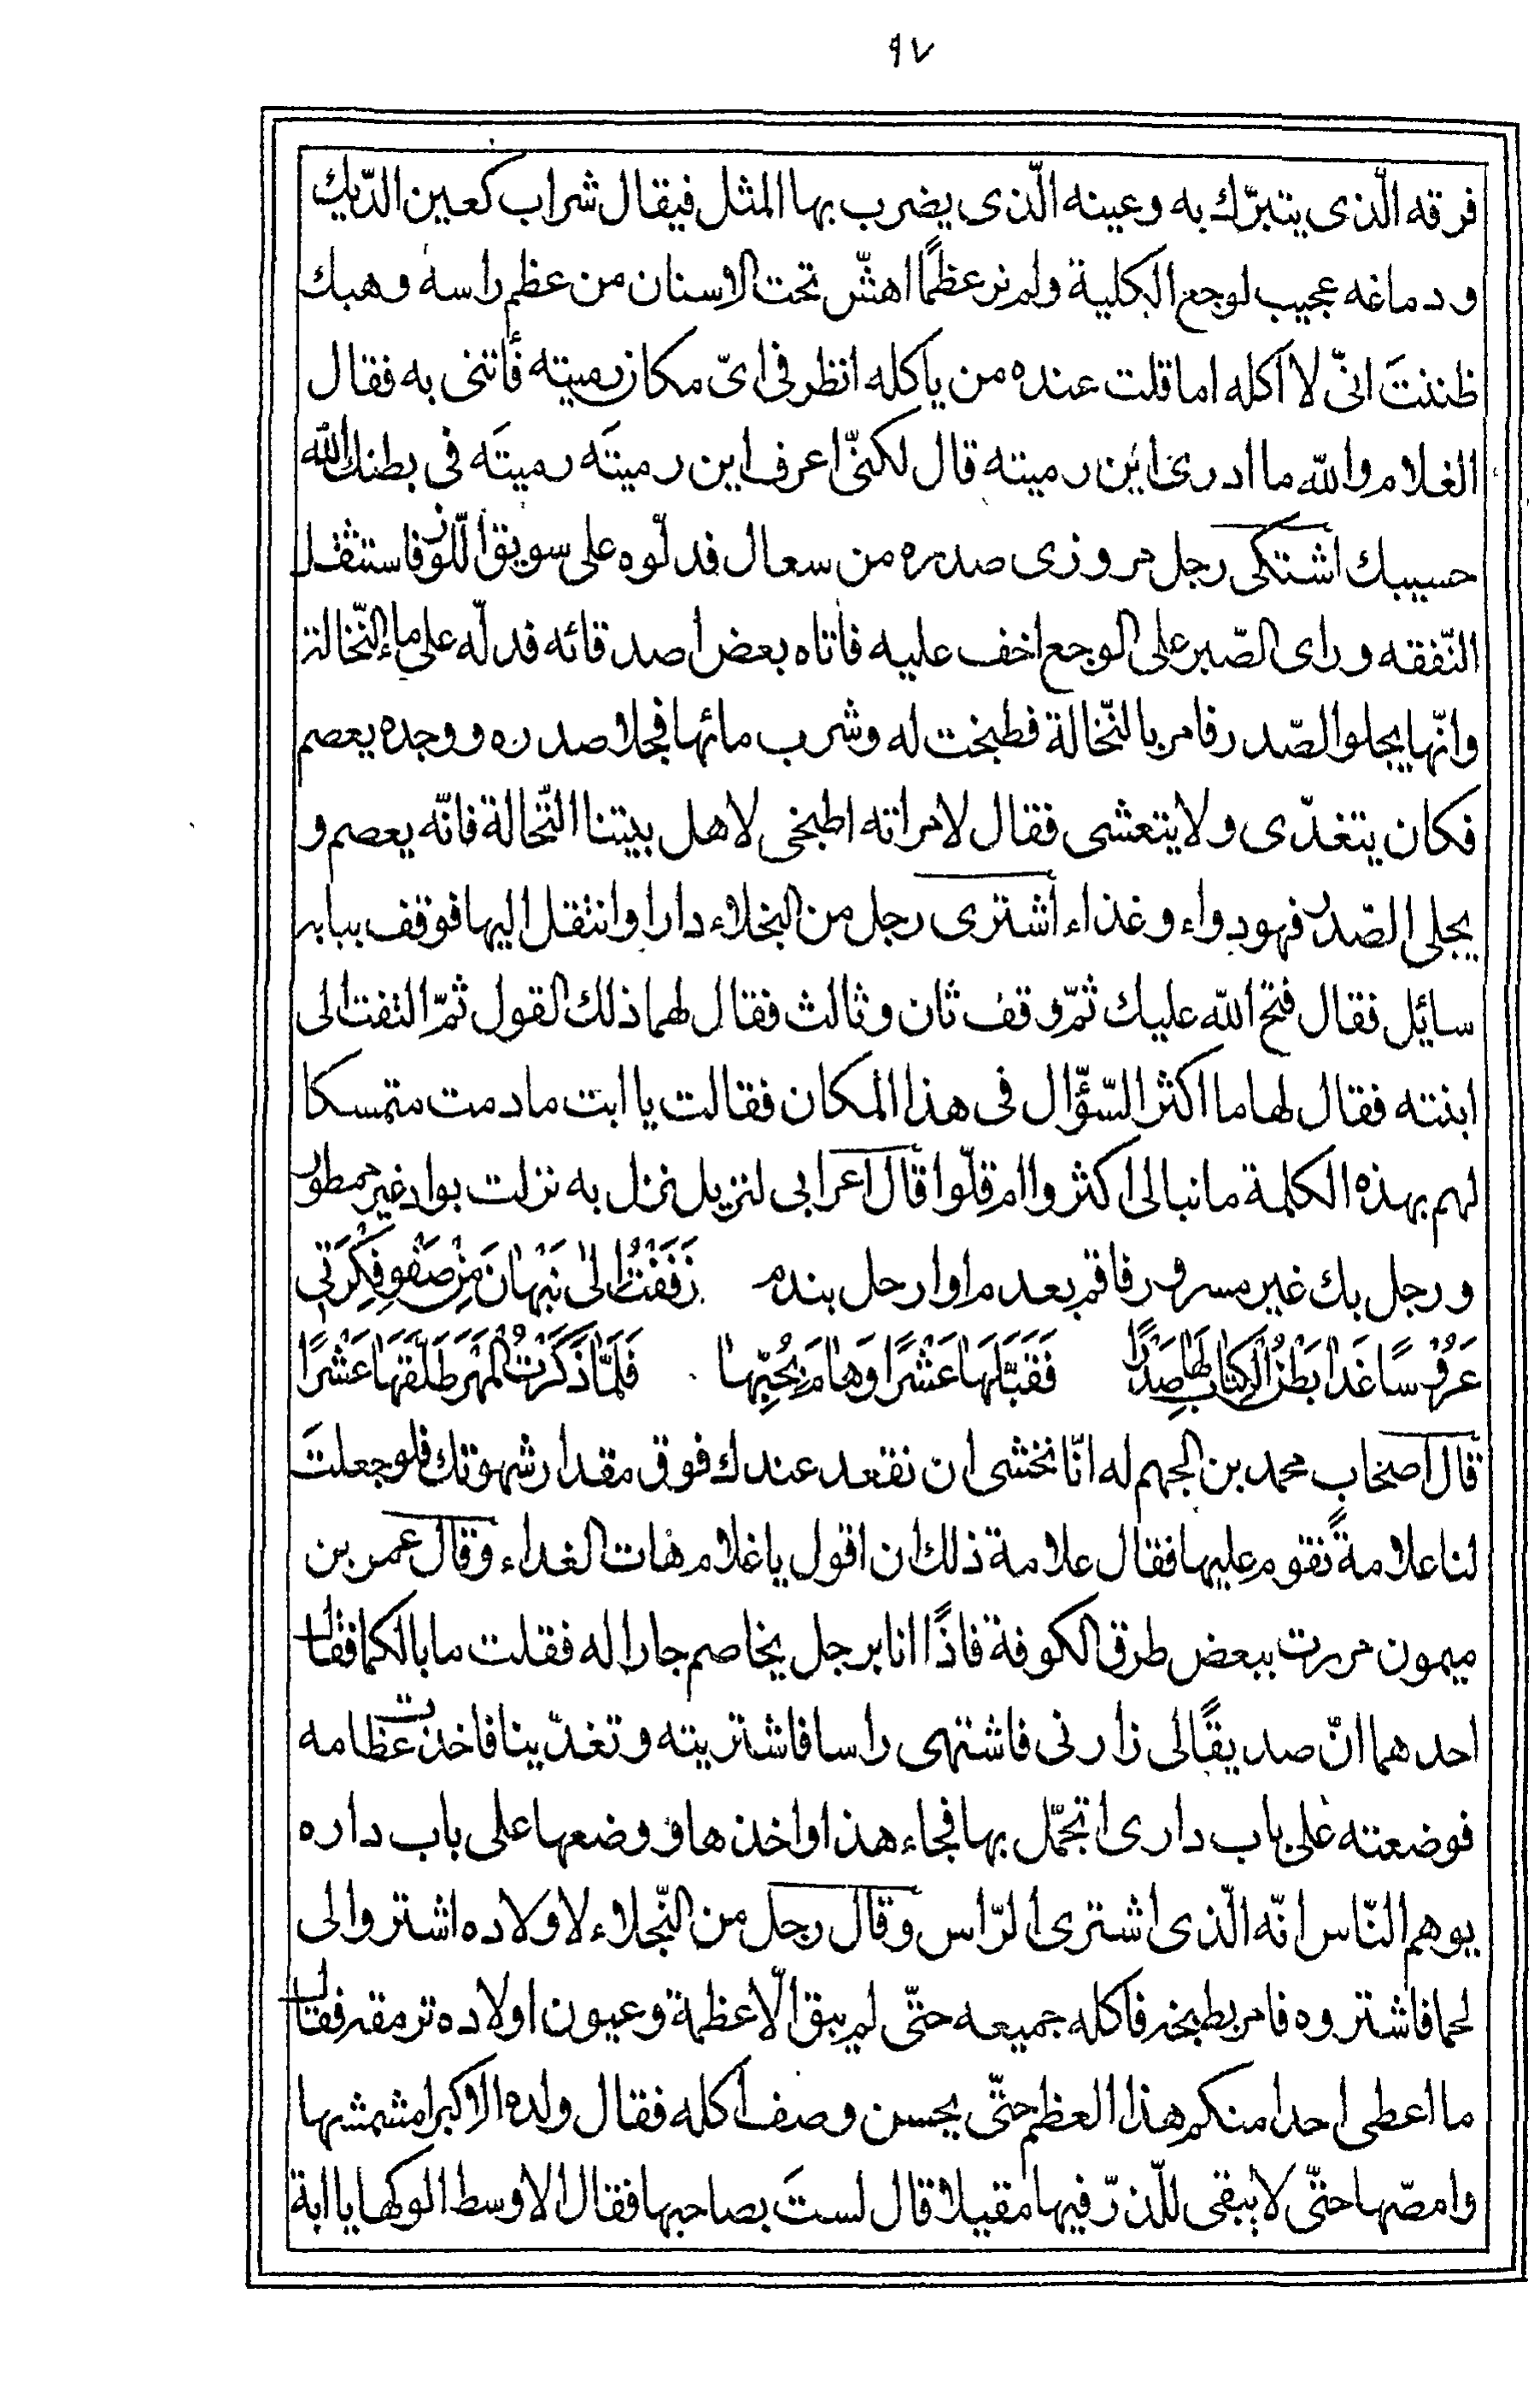 ٩٧
فرقه الّذى يتبرّك به وعينه الّذى يضرب بها المثل فيقال شراب كعين الدّيك
ودماغه عجيب لوجع الكلية ولم نر عظمًا اهشّ تحت الاسنان من عظم راسه وهبك
ظننتَ انّى لا آكله اما قلت عنده من ياكله انظر فى اىّ مكان رميته فأتنى به فقال
الغلام والله ما ادرى اين رميته قال لكنّى اعرف اين رميتَه رميتَه فى بطنك الله
حسيبك اشتكى رجل مروزى صدره من سعال فدلّوه على سويق اللّوز فاستثقل
النّفقه وراى الصّبر على الوجع اخف عليه فاتاه بعض اصدقائه فدلّه على ماء النّخالة
وانّها يجلو الصّدر فامر بالنّخالة فطبخت له وشرب مائها فجلا صدره ووجده يعصم
فكان يتغدّى ولا يتعشى فقال لامراته اطبخى لاهل بيتنا النّخالة فانّه يعصم و
يجلى الصّدر فهو دواء وغذاء اشترى رجل من البخلاء دارا وانتقل اليها فوقف ببابه
سائل فقال فتح الله عليك ثمّ وقف ثان وثالث فقال لهما ذلك القول ثمّ التفت الى
ابنته فقال لها ما اكثر السّؤّال فى هذا المكان فقالت يا ابت ما دمت متمسكا
لهم بهذه الكلمة ما نبالى اكثروا ام قلّوا قال اعرابى لنزيل نزل به نزلت بواد غير ممطور
ورجل بك غير مسرور فاقم بعدم او ارحل بندم زَفَفْتُ اِلىٰ نَبْهَانَ مِنْ صَفْوِ فِكْرَتِى
عَرُوسًا غَدَا بَطْنُ الكِتَابِ لَهَا صِدْرًا فَقَبَّلَهَا عَشْرًا وَهَامَ بِحُبِّهَا فَلَمَّا ذَكَرْتُ المَهْرَ طَلَّقَهَا عَشْرًا
قال اصحاب محمد بن الجهم له انّا نخشى ان نقعد عندك فوق مقدار شهوتك فلو جعلتَ
لنا علامةً نقوم عليها فقال علامة ذلك ان اقول يا غلام هات الغداء وقال عمر بن
ميمون مررت ببعض طرق الكوفة فاذًا انا برجل يخاصم جارا له فقلت ما بالكما فقال
احدهما انّ صديقًا لى زارنى فاشتهى راسا فاشتريته وتغدّينا فاخذت عظامه
فوضعته على باب دارى اتجمّل بها فجاء هذا واخذها ووضعها على باب داره
يوهم النّاس انّه الّذى اشترى الرّاس وقال رجل من البّخلاء لاولاده اشتروا لى
لحما فاشتروه فامر بطبخه فاكله جميعه حتّى لم يبق الّا عظمة وعيون اولاده ترمقه فقال
ما اعطى احدا منكم هذا العظم حتّى يحسن وصف اكله فقال ولده الاكبر امشمشها
وامصّها حتّى لا يبقى للذّرّ فيها مقيلا قال لستَ بصاحبها فقال الاوسط الوكها يا ابة